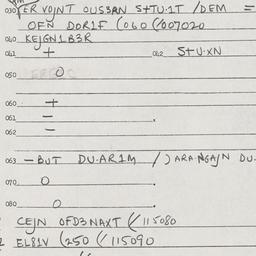 030 FER VOJNT OUSBRN S+TU·1T /DEM =
OFN DOR1F (060 (/007020
040 KEJGN1B3R
041 + 042 S+U·XN
050 O
060 +
061 -
062 -
063 -BUT DU·AR1M /) ARA·NGAJN DU·
070 O
080 O
CEJN OFD3NAXT (/115080
EL81V (250 (/115090